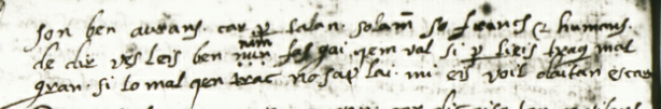 son ben aurans. car p talan. solam so francs & humans.
de dir ves leis ben nim fos gai. qem val si p lieis trag mal
gran. si lo mal qen trac no sap lai. ni eis voil aitan escar